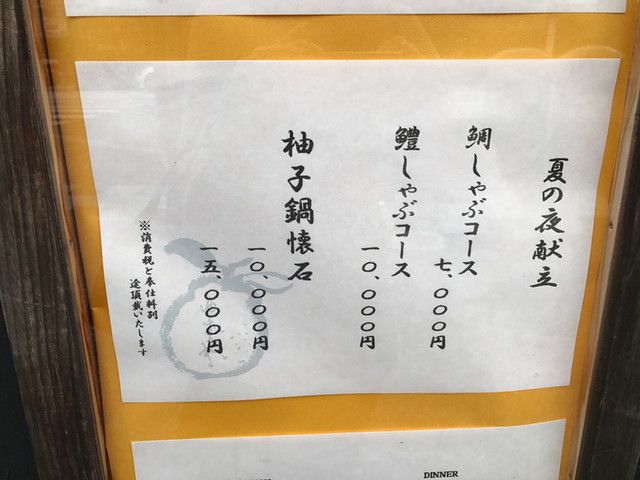 夏の夜献立
鯛しゃぶコース
七、〇〇〇円
鱧しゃぶコース
一〇、〇〇〇円
柚子鍋懐石
一〇、〇〇〇円
一五、〇〇〇円
※消費税と奉仕料別
途頂戴いたします
DINNER